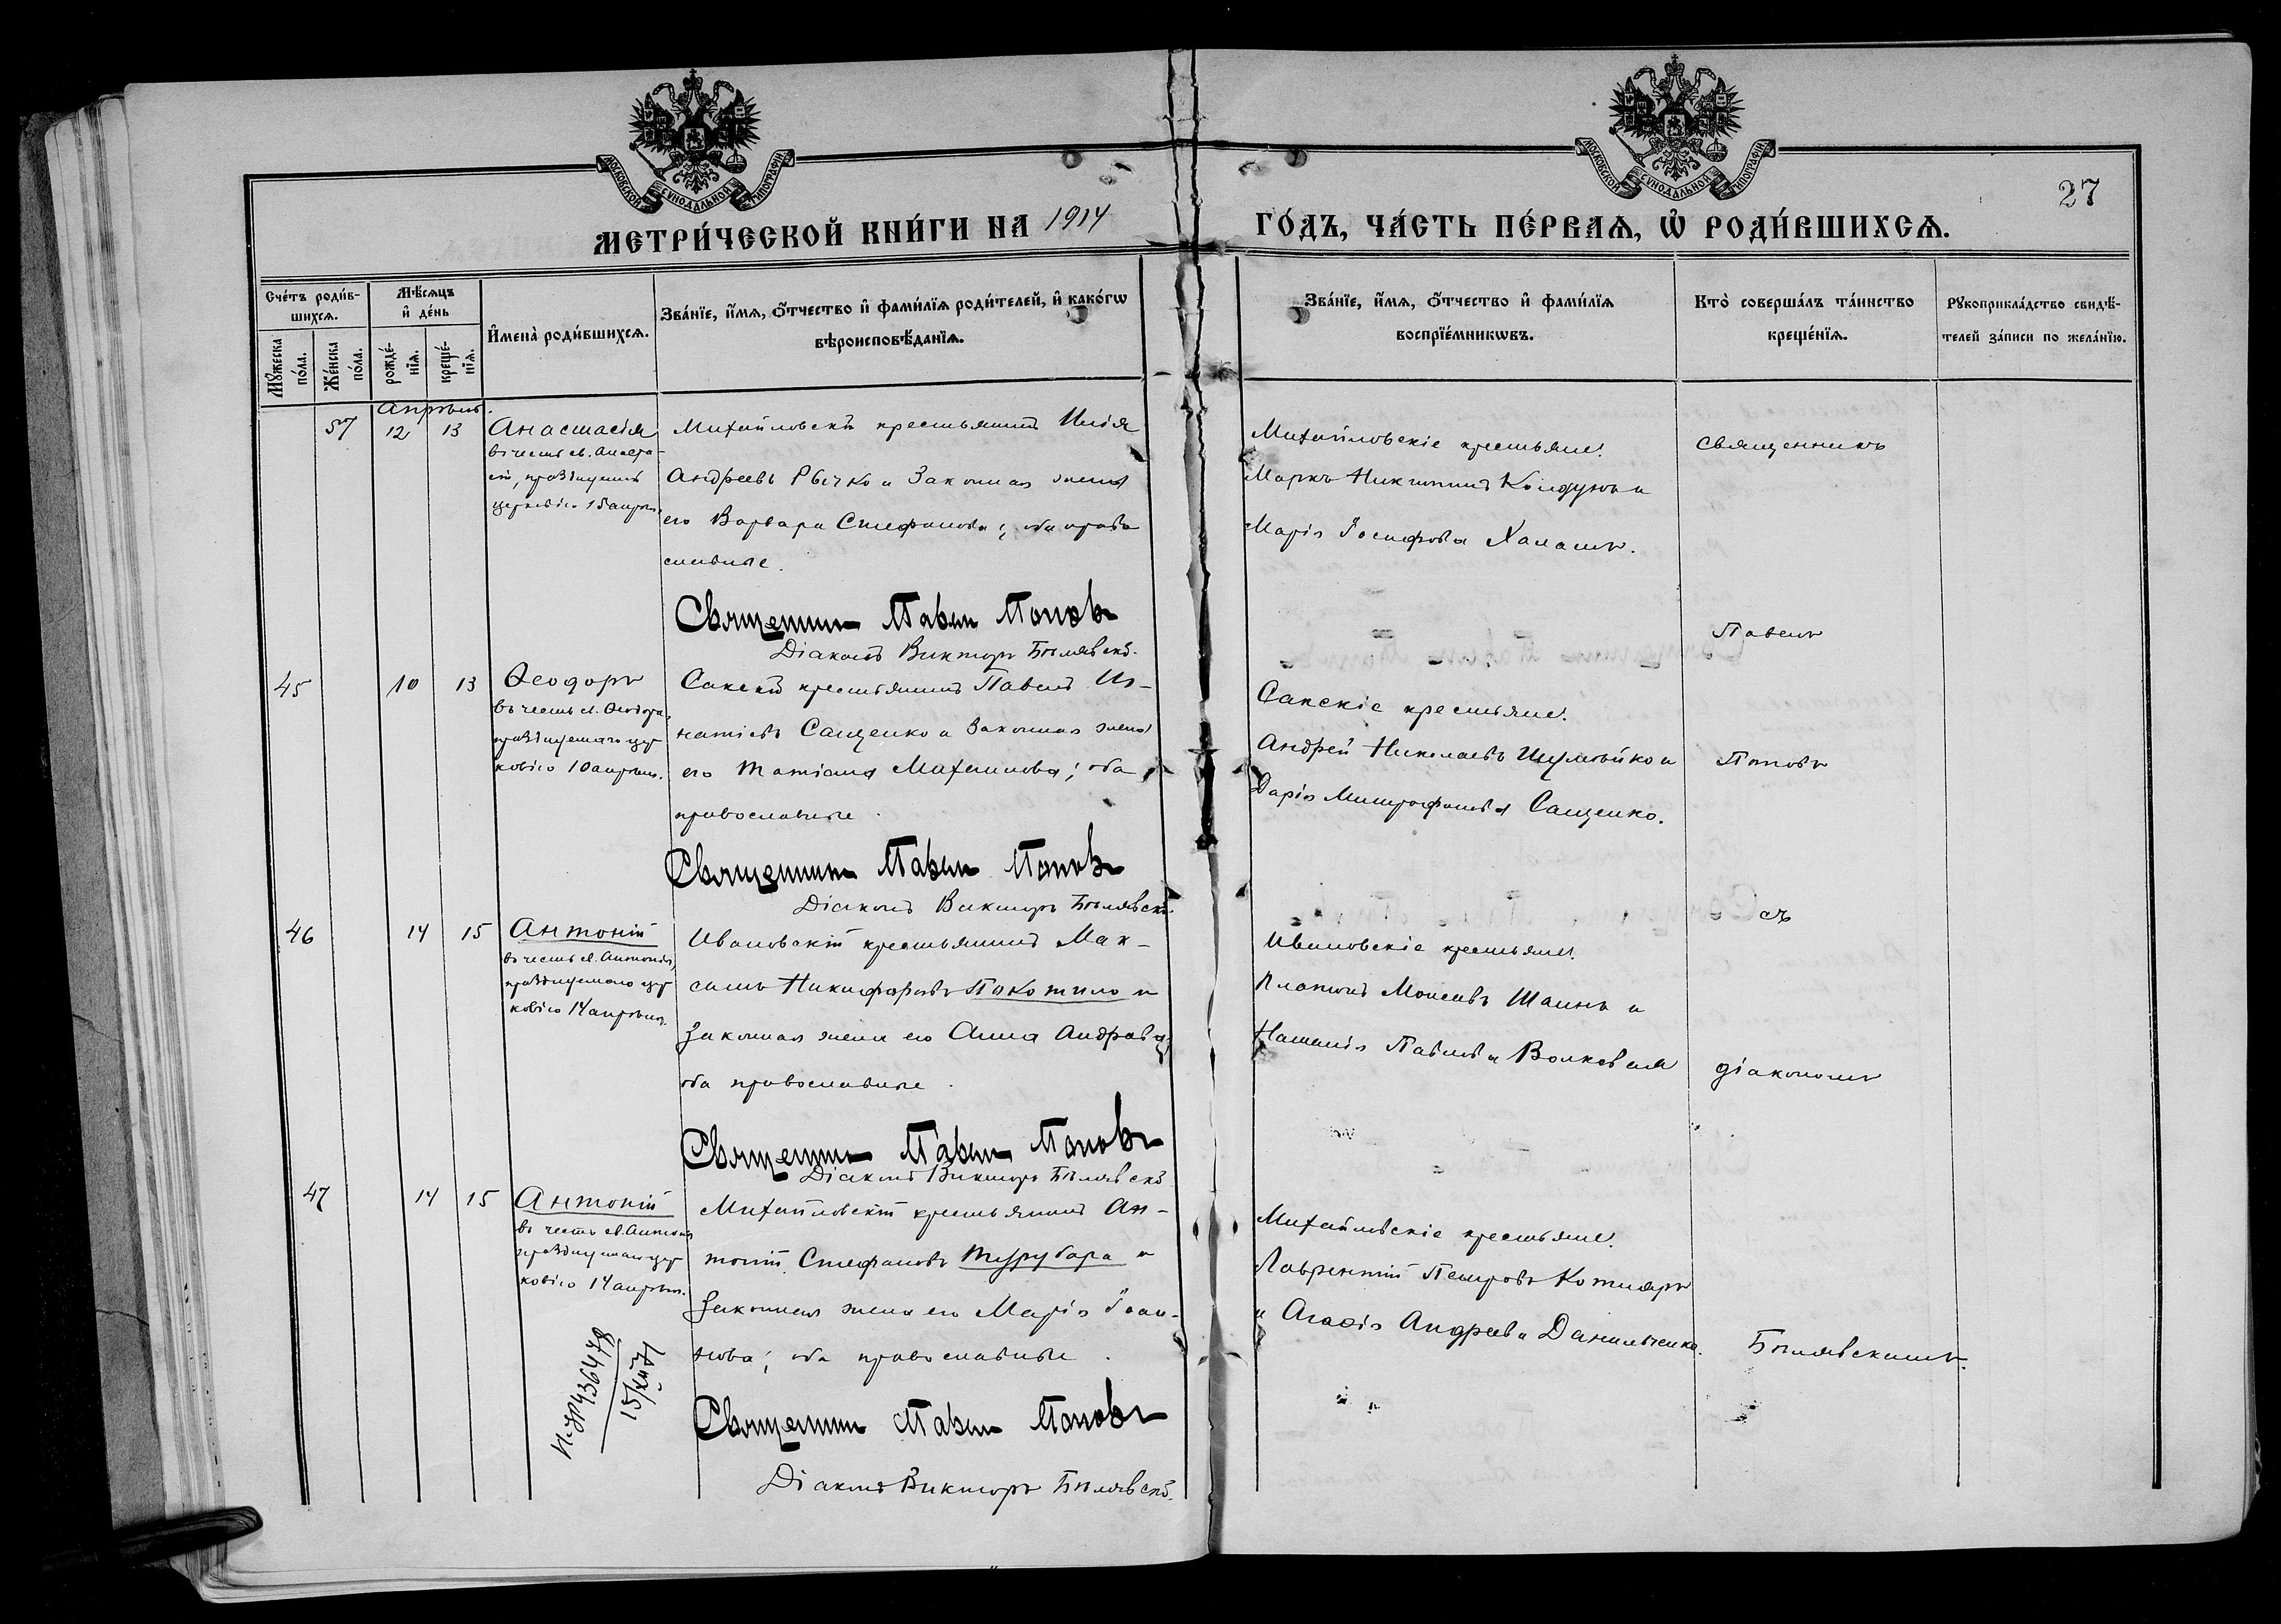 МОСКОВСКОЙ СѴНОДАЛЬНОЙ ТИПОГРАФІИ
МОСКОВСКОЙ СѴНОДАЛЬНОЙ ТИПОГРАФІИ
27
МЕТРИ́ЧЕСКОЙ КНИ́ГИ НА 1914
ГО́ДЪ, ЧА́СТЬ ПЕ́РВАѦ, Ѽ РОДИ́ВШИХСѦ.
Сче́тъ роди́в-
шихсѧ.
Мѣ́сѧцъ
и҆ де́нь
Мꙋ́жеска по́ла.
Же́нска по́ла.
рожде́-
нїѧ.
креще́-
нїѧ.
И҆мена̀ роди́вшихсѧ.
Зва́нїе, и҆́мѧ, ѻ҆́тчество и҆ фами́лїѧ роди́телей, и҆ како́гѡ
вѣроисповѣ́данїѧ.
Зва́нїе, и҆́мѧ, ѻ҆́тчество и҆ фами́лїѧ
воспрїе́мникѡвъ.
Кто̀ соверша́лъ та́инство
креще́нїѧ.
Рꙋкоприкла́дство свидѣ́-
телей за́писи по жела́нїю.
Апрѣль.
57 12 13 Анастасія
въ честь св. Анаста-
сіи, празднуемой
церковію 15 апрѣл.
Михайловскій крестьянинъ Илія
Андреевъ Рычко и законная жена
его Варвара Стефанова; оба право
славные.
Священникъ Павелъ Поповъ
Діаконъ Викторъ Бѣлявскій.
Михайловскіе крестьяне:
Маркъ Никитинъ Колдунъ и
Марія Іосифова Халанъ.
Священникъ
Павелъ
45 10 13 Ѳеодоръ
въ честь св. Ѳеодора,
празднуемаго цер
ковію 10 апрѣля.
Сакскій крестьянинъ Павелъ Иг-
натіевъ Сащенко и законная жена
его Татіана Матвѣинова; оба
православные.
Священникъ Павелъ Поповъ
Діаконъ Викторъ Бѣлявскій.
Сакскіе крестьяне:
Андрей Николаевъ Шумейко и
Дарія Митрофанова Сащенко.
Поповъ
съ
46 14 15 Антоній
въ честь св. Антонія,
празднуемаго цер
ковію 14 апрѣля.
Ивановскій крестьянинъ Мак-
симъ Никифоровъ Покотило и
законная жена его Анна Андреева;
оба православные.
Священникъ Павелъ Поповъ
Діаконъ Викторъ Бѣлявскій
Ивановскіе крестьяне:
Платонъ Моисеевъ Шаинъ и
Наталія Павлова Волковая
діакономъ
47 14 15 Антоній
въ честь св. Антонія
празднуемаго цер
ковію 14 апрѣля.
Михайловскій крестьянинъ Ан-
тоній Стефановъ Турубара и
законная жена его Марія Іоан-
нова; оба православные.
Священникъ Павелъ Поповъ
Діаконъ Викторъ Бѣлявскій.
Михайловскіе крестьяне:
Лаврентій Петровъ Котляръ
и Агафія Андреева Данильченко.
Бѣлявскимъ.
436478
15/XII 71